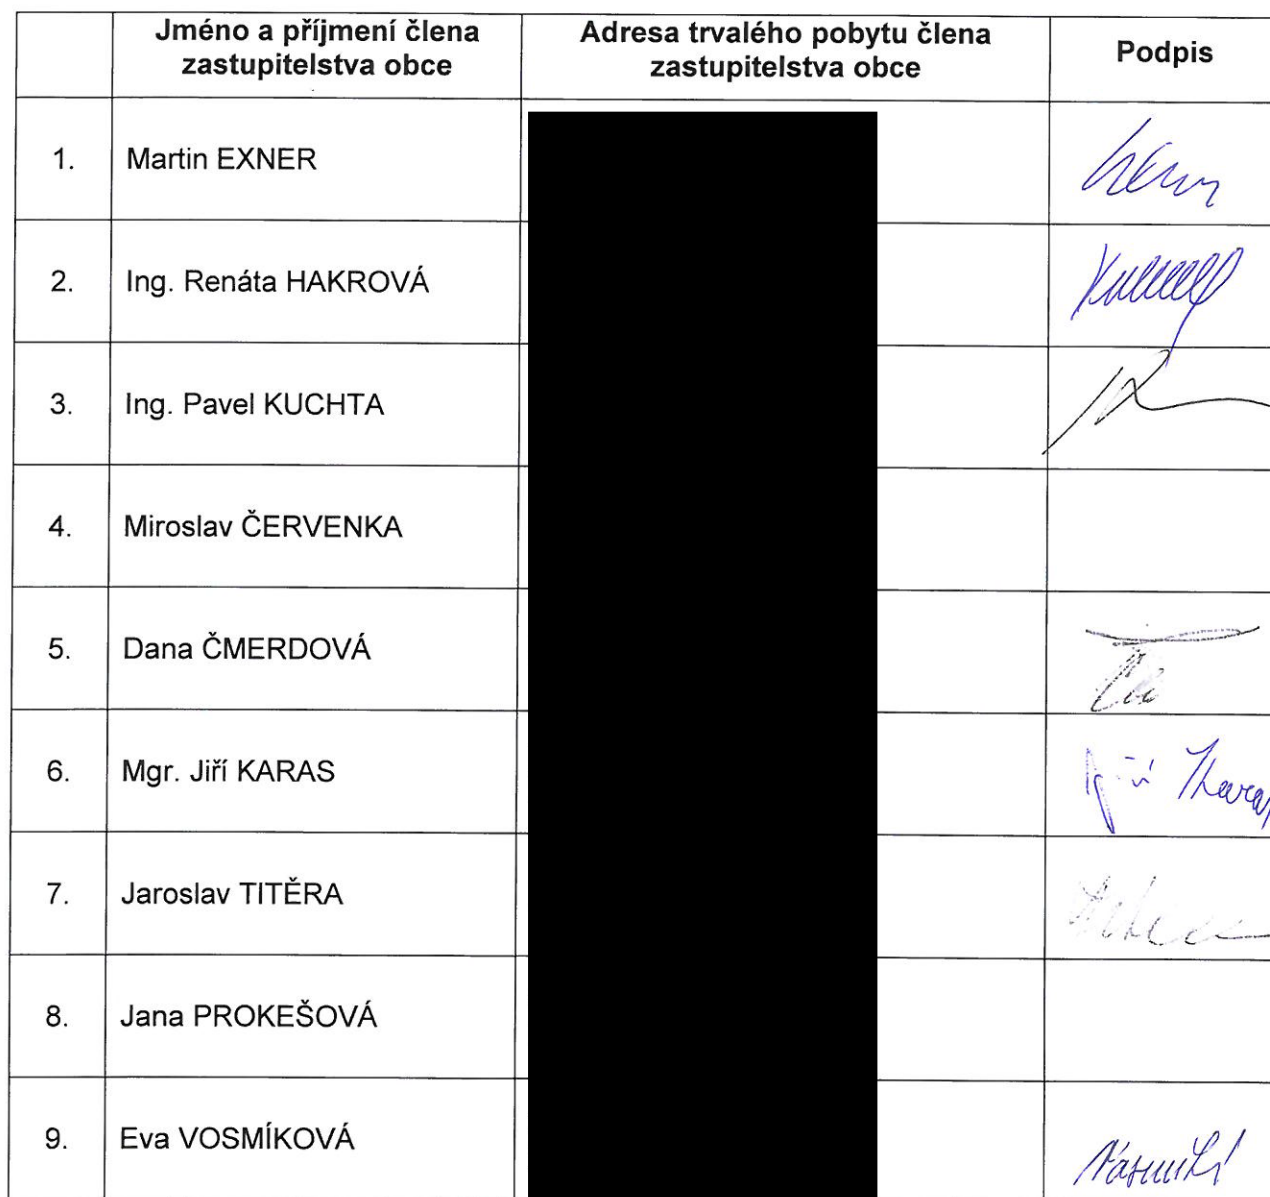 Jméno a příjmení člena
zastupitelstva obce
Adresa trvalého pobytu člena
zastupitelstva obce
Podpis
1. Martin EXNER
2. Ing. Renáta HAKROVÁ
3. Ing. Pavel KUCHTA
4. Miroslav ČERVENKA
5. Dana ČMERDOVÁ
6. Mgr. Jiří KARAS
7. Jaroslav TITĚRA
8. Jana PROKEŠOVÁ
9. Eva VOSMÍKOVÁ